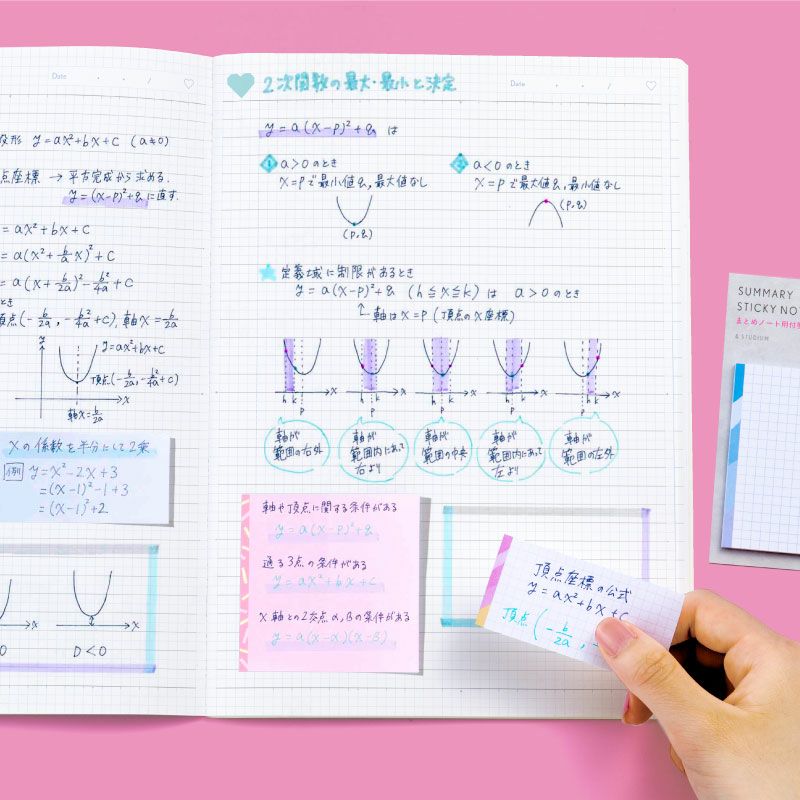 Date
形 y=ax²+bx+c (a≠0)
点座標 → 平方完成から求める.
y=(x-p)²+q に直す.
=ax²+bx+c
=a(x²+b/a x)²+c
=a(x+b/2a)²-b²/4a+c
とき
頂点(-b/2a, -b²/4a+c), 軸x=b/2a
y
y=ax²+bx+c
頂点(-b/2a, -b²/4a+c)
x
軸x=b/2a
xの係数を半分にして2乗
例 y=x²-2x+3
=(x-1)²-1+3
=(x-1)²+2
x
x
0
D<0
2次関数の最大・最小と決定
Date
y=a(x-p)²+q は
1 a>0のとき
x=pで最小値q, 最大値なし
(p,q)
2 a<0のとき
x=pで最大値q, 最小値なし
(p,q)
定義域に制限があるとき
y=a(x-p)²+q (h≦x≦k) は a>0のとき
↑軸はx=p(頂点のx座標)
h k p x
h k p x
h p k x
h p k x
p h k x
軸が範囲の右外
軸が範囲内にあって右より
軸が範囲の中央
軸が範囲内にあって左より
軸が範囲の左外
軸や頂点に関する条件がある
y=a(x-p)²+q
通る3点の条件がある
y=ax²+bx+c
x軸との2交点α,βの条件がある
y=a(x-α)(x-β)
頂点座標の公式
y=ax²+bx+c
頂点(-b/2a, -
SUMMARY
STICKY NO
まとめノート用付
& STUDIUM